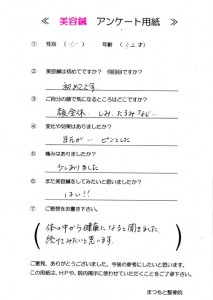 ≪ 美容鍼 アンケート用紙 ≫
① 性別 ( ) 年齢 ( 才)
② 美容鍼は初めてですか? 何回目ですか?
初めてです
③ ご自分の顔で気になるところはどこですか?
顔全体、しみ、たるみなど…
④ 変化や効果はありましたか?
目元が… ピンとした
⑤ 痛みはありましたか?
少しありました
⑥ また美容鍼をしてみたいと思いましたか?
はい!!
⑦ ご感想をお書き下さい。
体の中から健康になると聞きました
続けてみたいと思います。
ご意見、ありがとうございました。今後の参考にしたいと思います。
この用紙は、HPや、院内掲示に使わせていただくことをご了承下さい。
まつもと整骨院